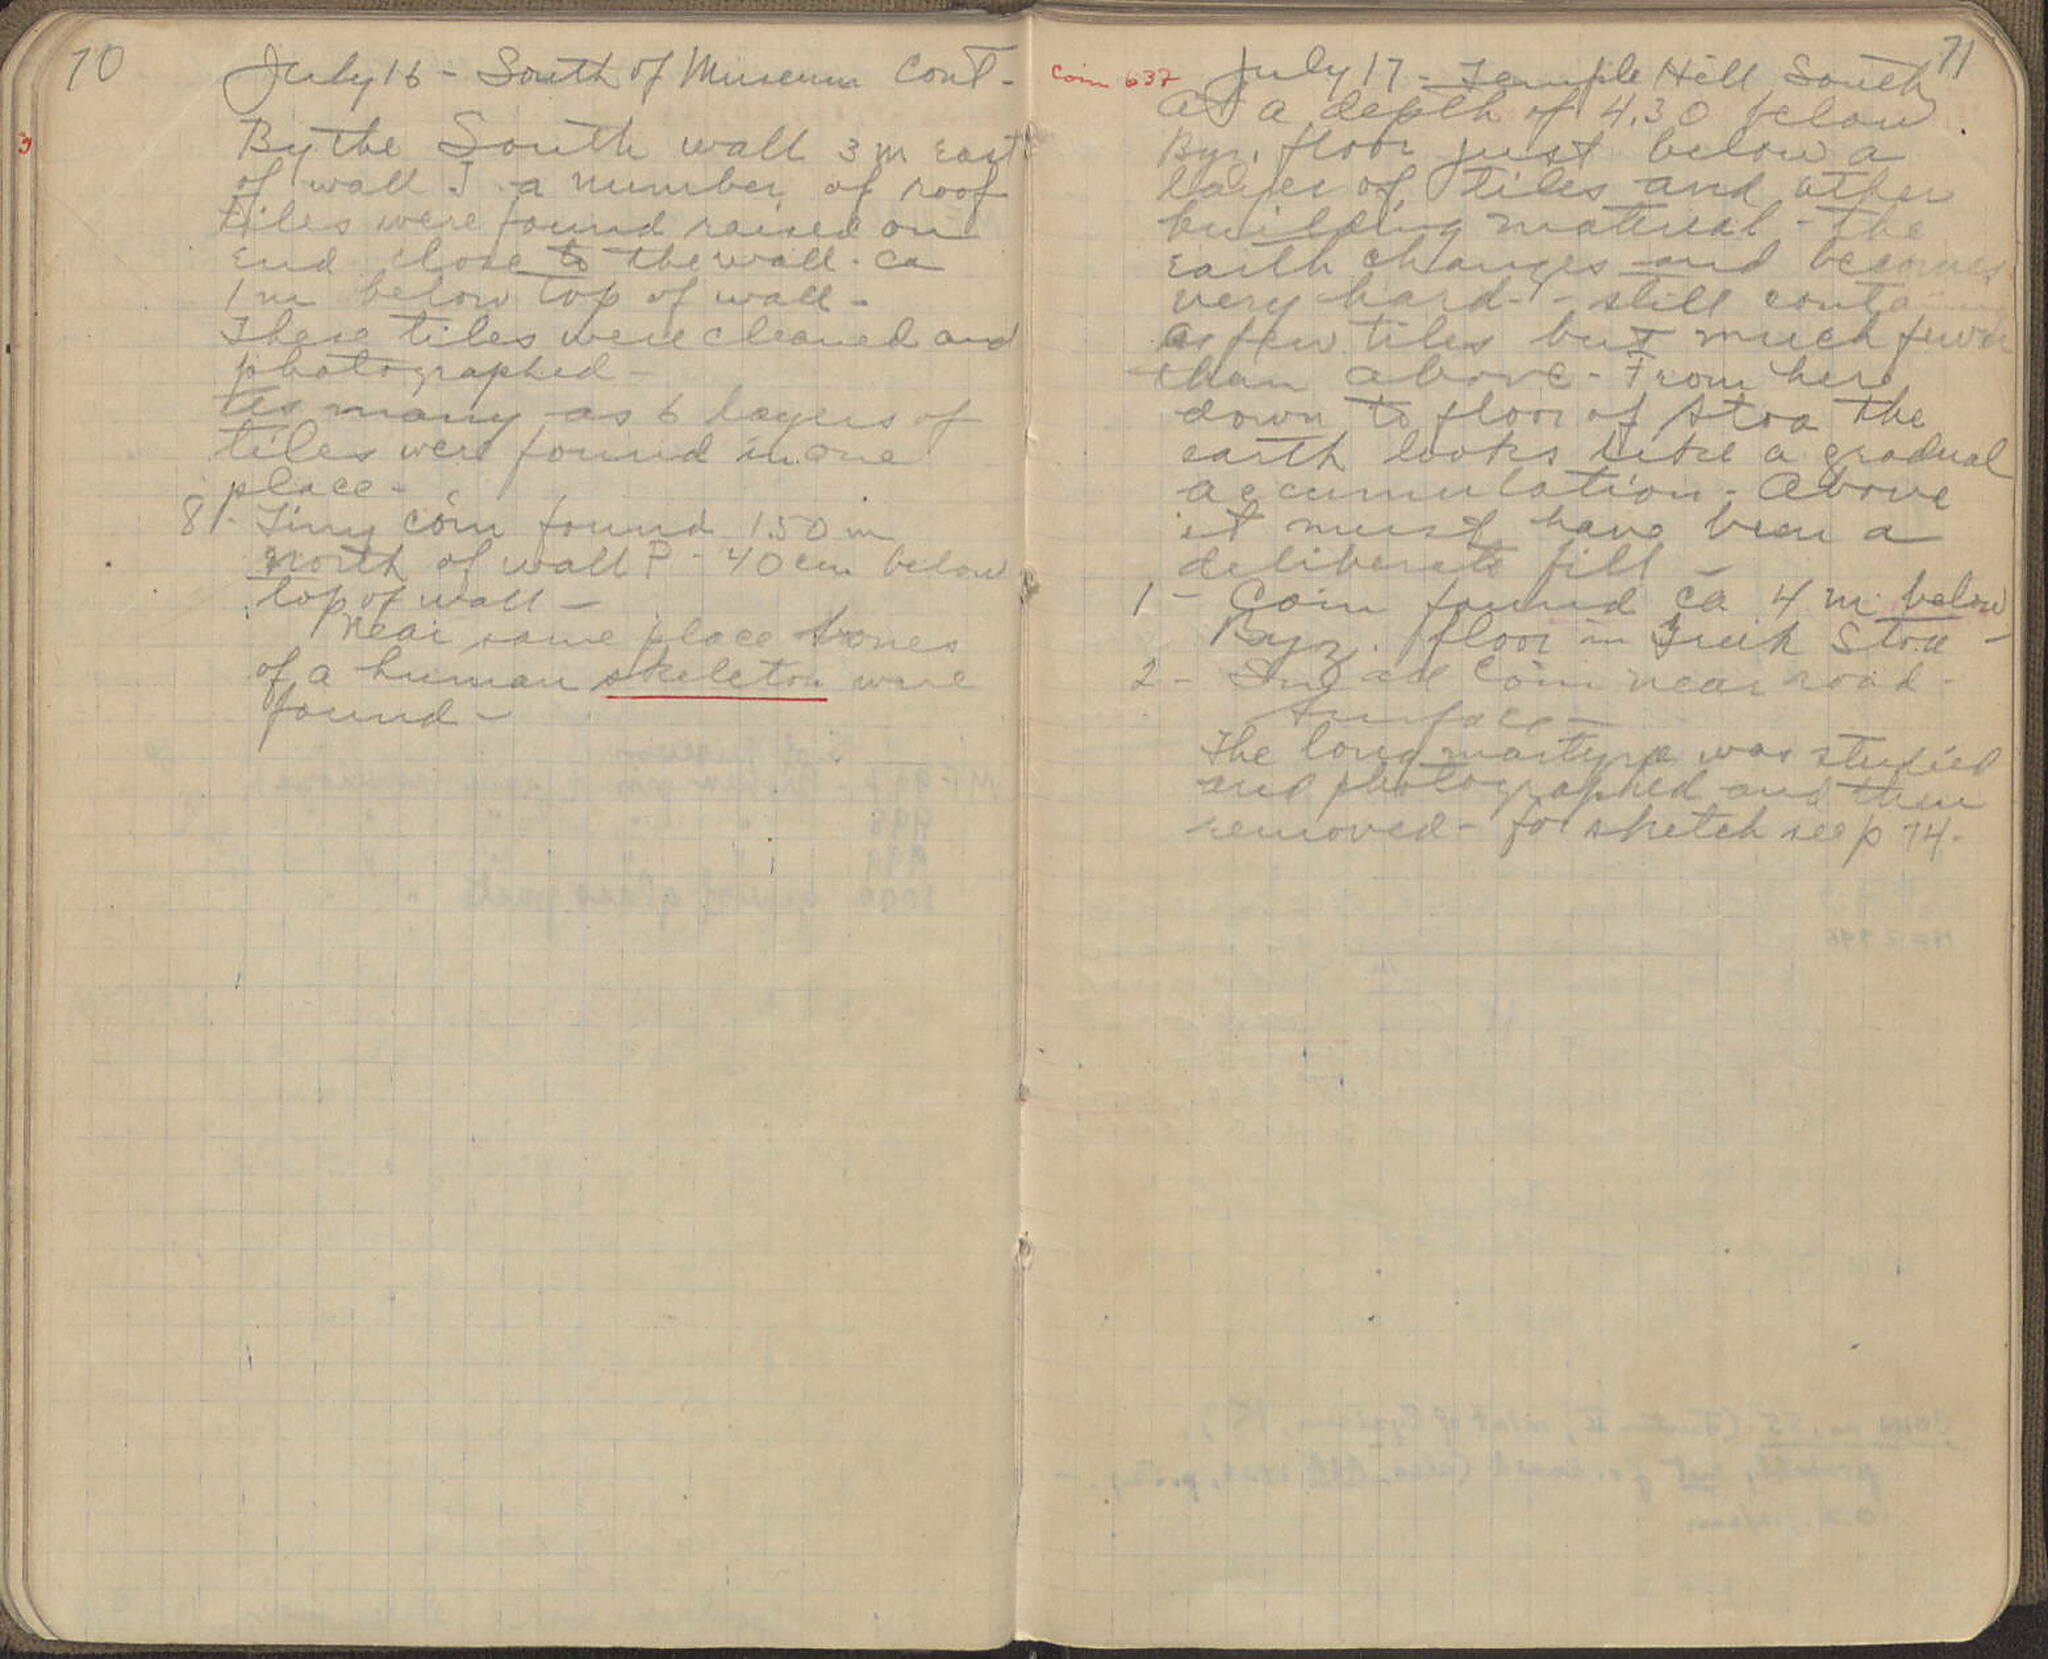 70
July 16 - South of Museum Cont -
By the South wall 3 m East
of wall J - a number of roof
tiles were found raised on
end close to the wall - ca
1 m below top of wall -
These tiles were cleaned and
photographed -
As many as 6 layers of
tiles were found in one
place -
8 - Tiny coin found 1.50 m
north of wall P - 40 cm below
top of wall -
Near same place bones
of a human skeleton were
found -
71
Coin 637
July 17 - Temple Hill South
At a depth of 4.30 below
Byz. floor just below a
layer of tiles and other
building material - the
earth changes and becomes
very hard - still
a few tiles but much fewer
than above - From here
down to floor of Stoa the
earth looks like a gradual
accumulation - Above
it must have been a
deliberate fill -
1 - Coin found ca 4 m below
Byz. floor in Greek Stoa -
2 - Small coin near road -
surface -
The long was studied
and photographed and then
removed - for sketch see p 74 -